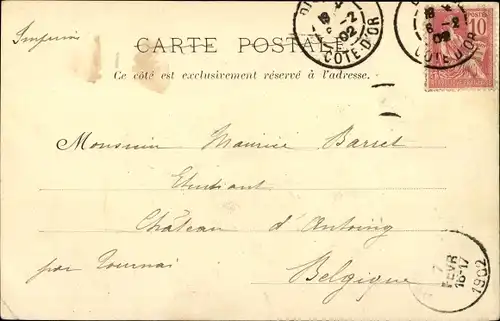 Imprimé
CARTE POSTALE
Ce côté est exclusivement réservé à l'adresse.
DI
6 -2
02
COTE-D'OR
POSTES
10
6 -2
02
COTE-D'OR
Monsieur Maurice Barret
Etudiant
Château d'Antoing
par Tournai
Belgique
7
FEVR
16-17
1902